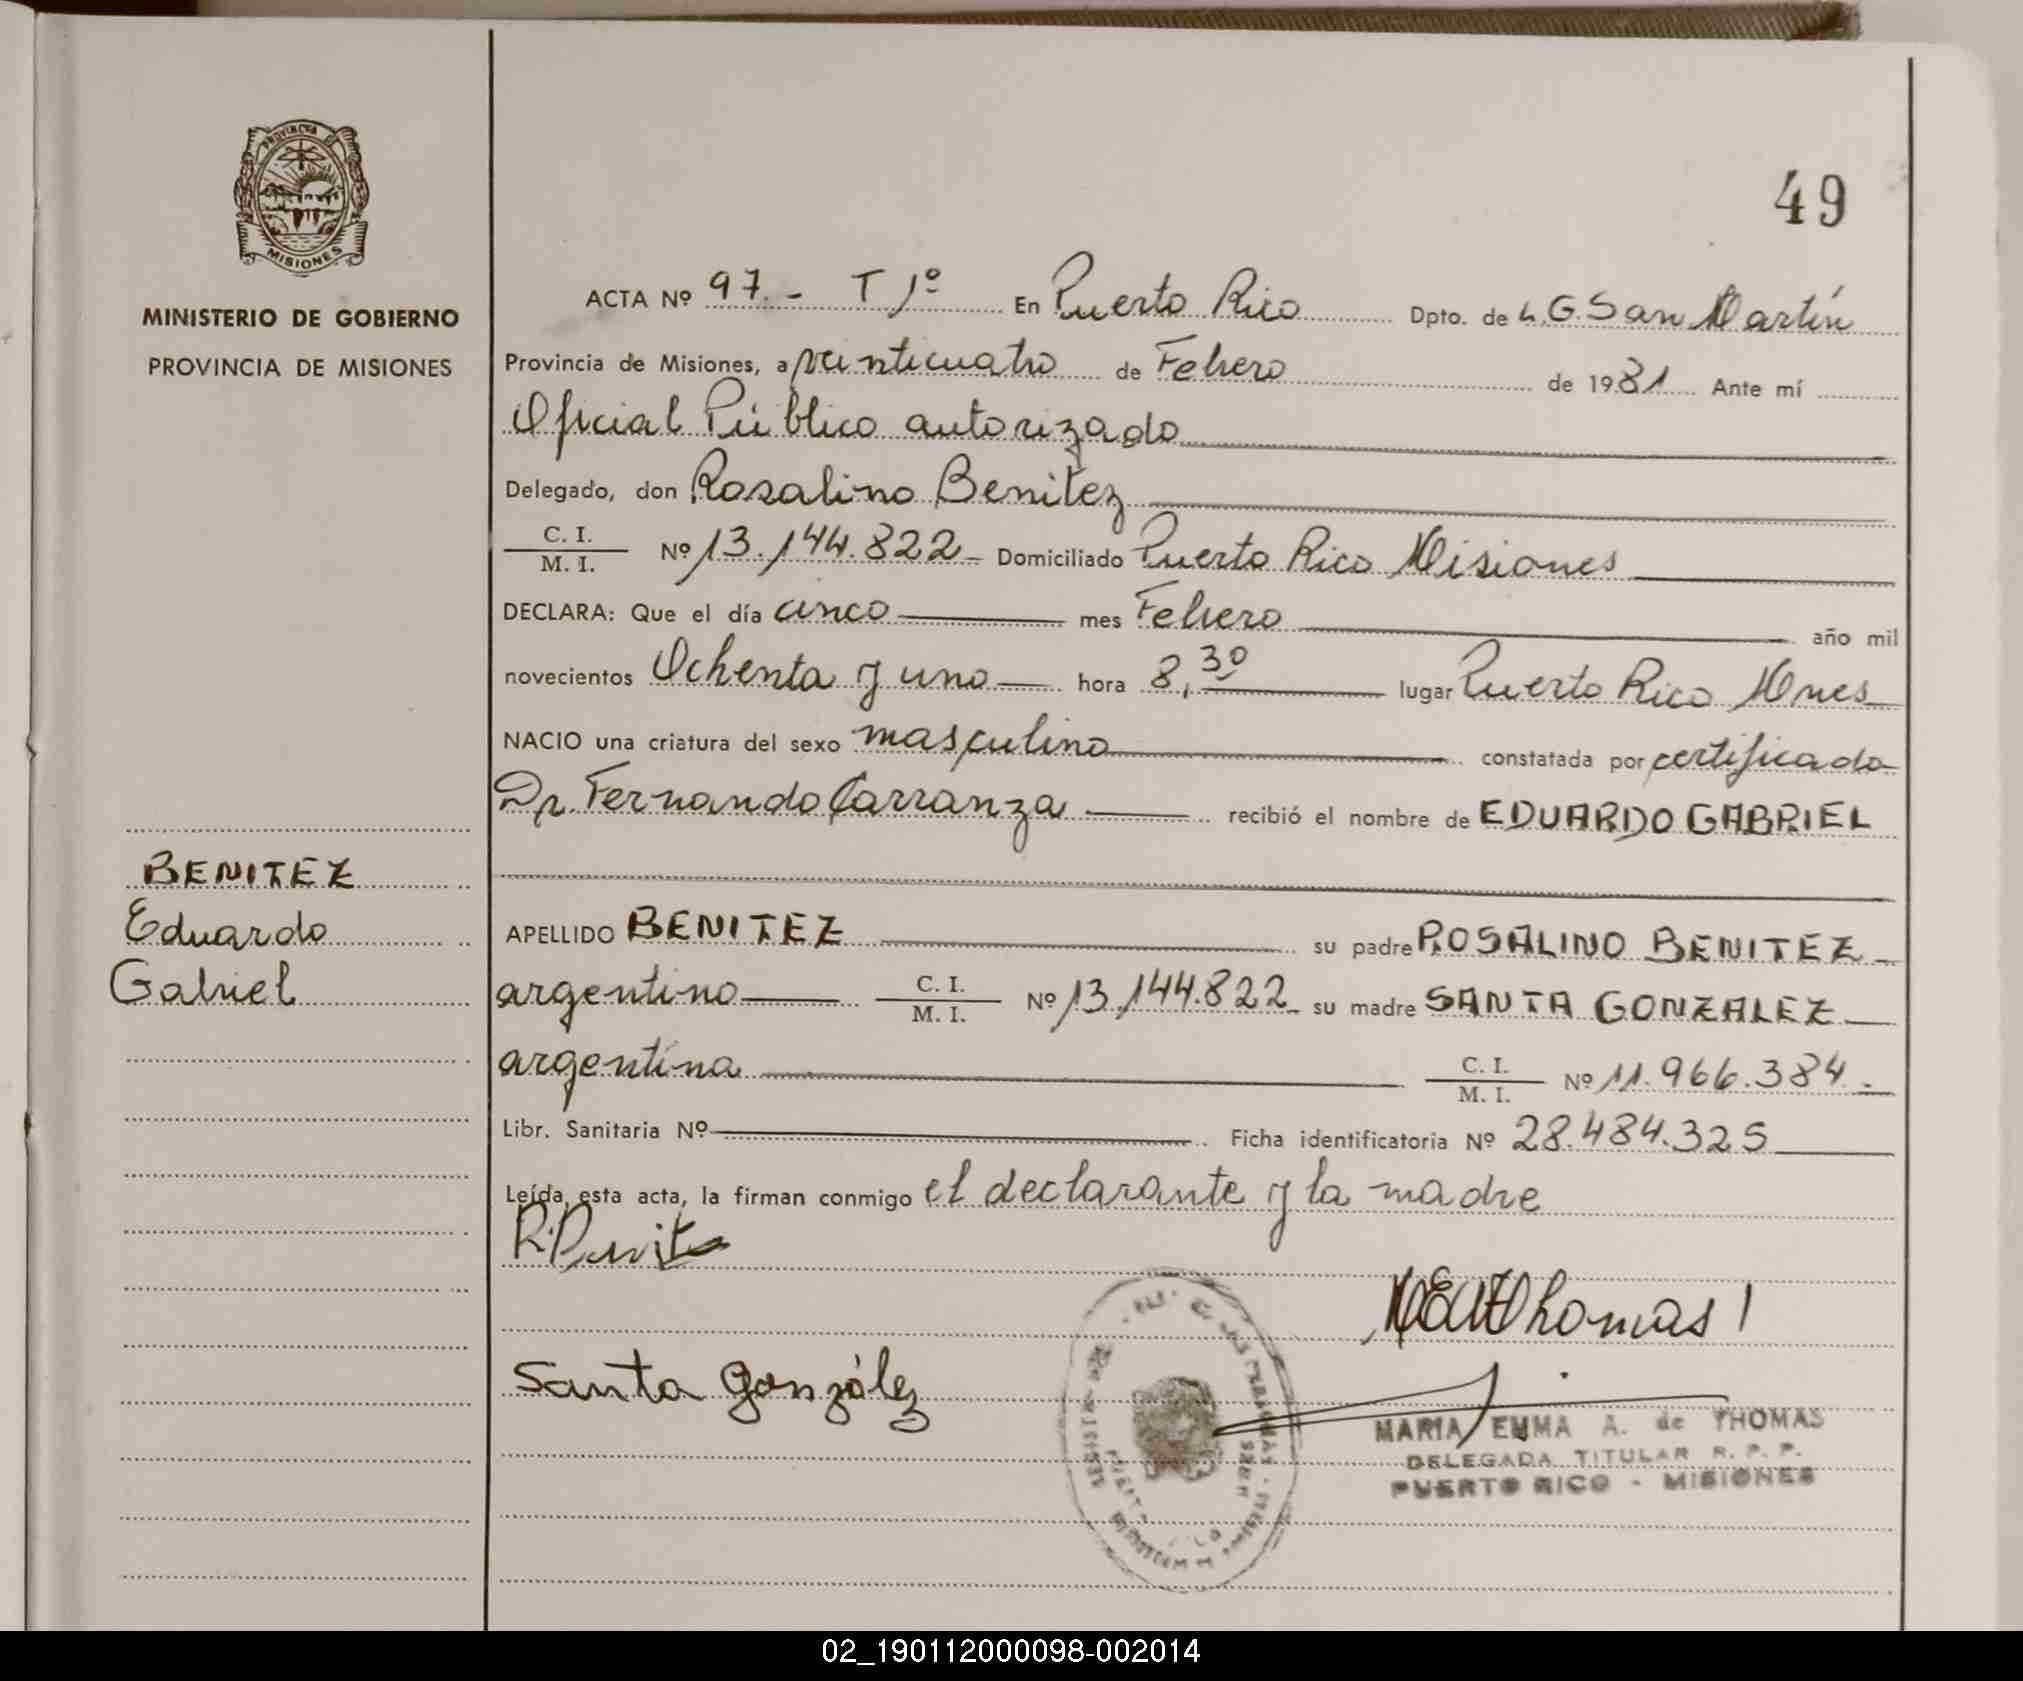 PROVINCIA DE
MISIONES
MINISTERIO DE GOBIERNO
PROVINCIA DE MISIONES
BENITEZ
Eduardo
Gabriel
49
ACTA Nº 97.- T 1º En Puerto Rico Dpto. de L.G San Martín
Provincia de Misiones, a veinticuatro de Febrero de 1981 Ante mí
Oficial Público autorizado
Delegado, don Rosalino Benitez
C. I.
M. I. Nº 13.144.822- Domiciliado Puerto Rico Misiones
DECLARA: Que el día cinco mes Febrero año mil
novecientos Ochenta y uno hora 8,30 lugar Puerto Rico Mnes
NACIO una criatura del sexo masculino constatada por certificado
Dr. Fernando Carranza recibió el nombre de EDUARDO GABRIEL
APELLIDO BENITEZ su padre ROSALINO BENITEZ
argentino C. I.
M. I. Nº 13.144.822 su madre SANTA GONZALEZ
argentina C. I.
M. I. Nº 11.966.384.
Libr. Sanitaria Nº Ficha identificatoria Nº 28.484.325
Leída esta acta, la firman conmigo el declarante y la madre
Santa González
Thomas
MARIA EMMA A. de THOMAS
DELEGADA TITULAR R. P. P.
PUERTO RICO - MISIONES
02_190112000098-002014